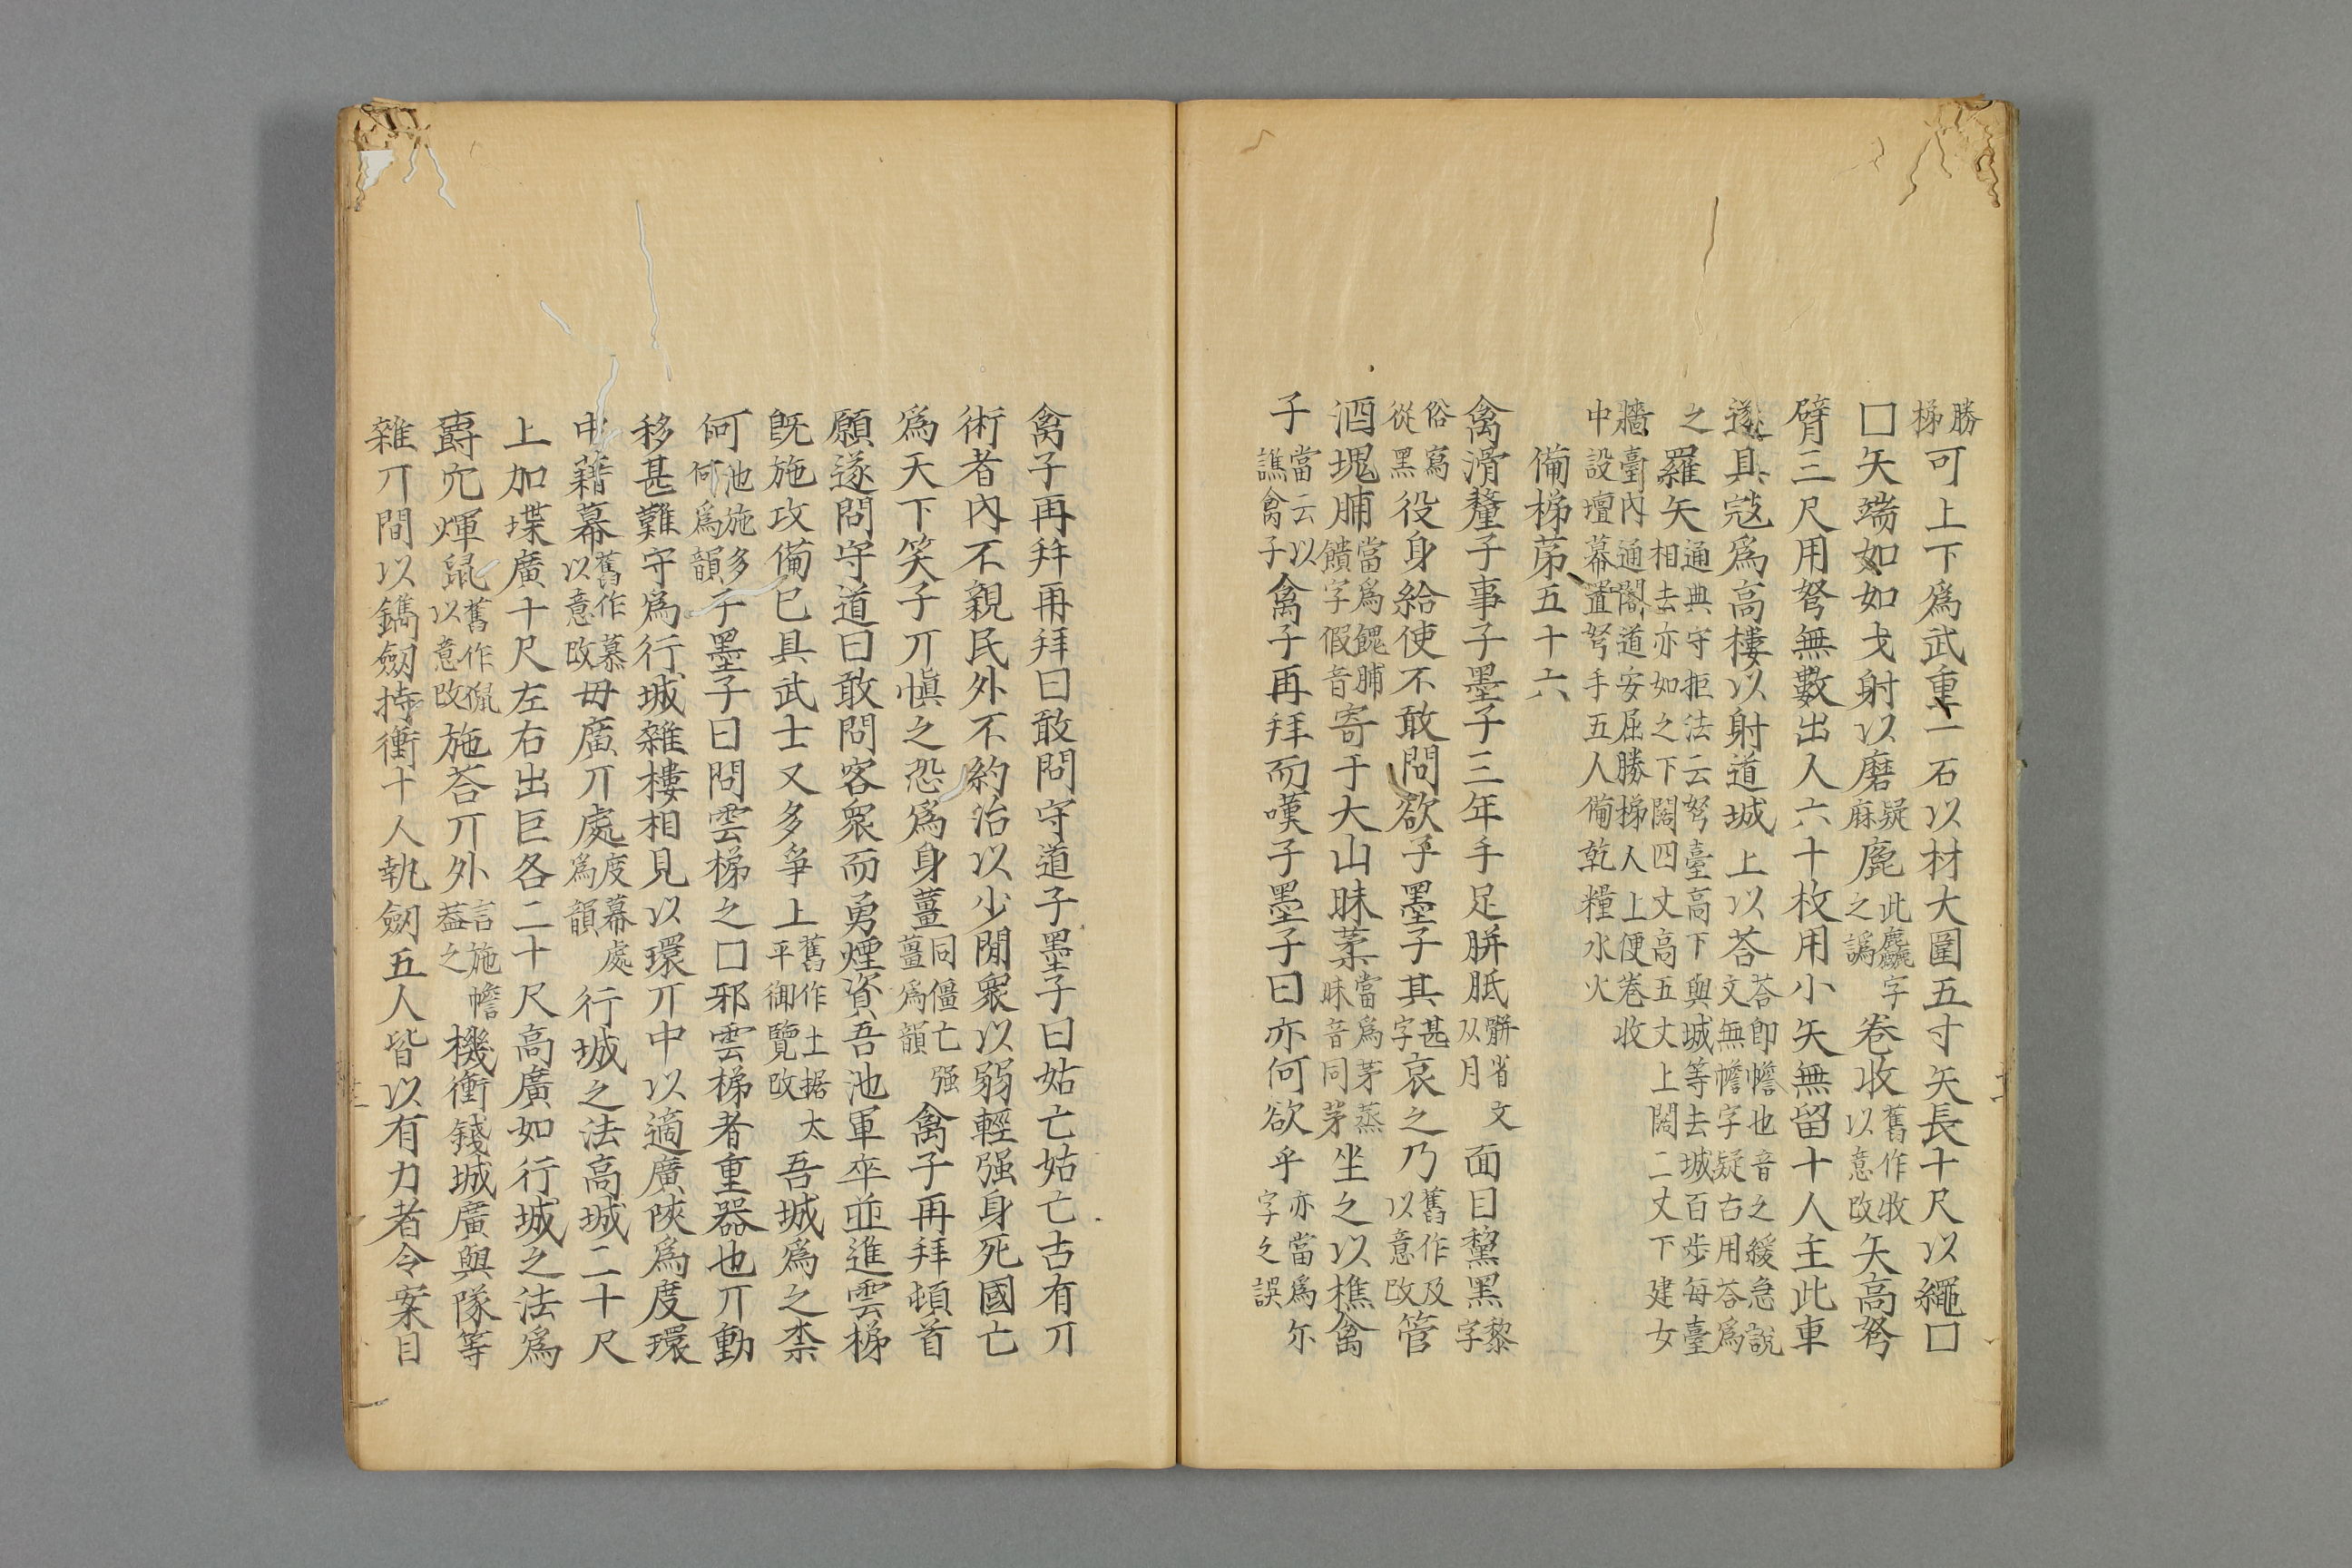 勝梯可上下爲武重一石以材大圍五寸矢長十尺以繩□
□矢端如如戈射以磨疑麻鹿此麤字之譌卷收舊作收以意改矢高弩
臂三尺用弩無數出人六十枚用小矢無留十人主此車
遂具寇爲高樓以射道城上以荅荅即幨也音之緩急說文無幨字疑古用荅爲
之羅矢通典守拒法云弩臺高下與城等去城百步每臺相去亦如之下闊四丈高五丈上闊二丈下建女
牆臺內通闇道安屈勝梯人上便卷收中設壇幕置弩手五人備乾糧水火
備梯苐五十六
禽滑釐子事子墨子三年手足胼胝骿省文从月面目黧黑黎字
俗寫從黑役身給使不敢問欲子墨子其甚字哀之乃舊作及以意改管
酒塊脯當爲餽脯饋字假音寄于大山昧葇當爲茅蒸昧音同茅坐之以樵禽
子當云以譙禽子禽子再拜而嘆子墨子曰亦何欲乎亦當爲尔字之誤
禽子再拜再拜曰敢問守道子墨子曰姑亡姑亡古有丌
術者內不親民外不約治以少閒衆以弱輕强身死國亡
爲天下笑子丌愼之恐爲身薑同僵亡强薑爲韻禽子再拜頓首
願遂問守道曰敢問客衆而勇煙資吾池軍卒並進雲梯
旣施攻備已具武士又多爭上舊作土據太平御覽改吾城爲之柰
何池施多何爲韻子墨子曰問雲梯之□邪雲梯者重器也丌動
移甚難守爲行城雜樓相見以環丌中以適廣陜爲度環
中藉幕舊作慕以意改毋廣丌處度幕處爲韻行城之法高城二十尺
上加堞廣十尺左右出巨各二十尺高廣如行城之法爲
爵穴煇鼠舊作䑕以意改施荅丌外言施幨葢之機衝錢城廣與隊等
雜丌間以鐫劒持衝十人執劒五人皆以有力者令案目